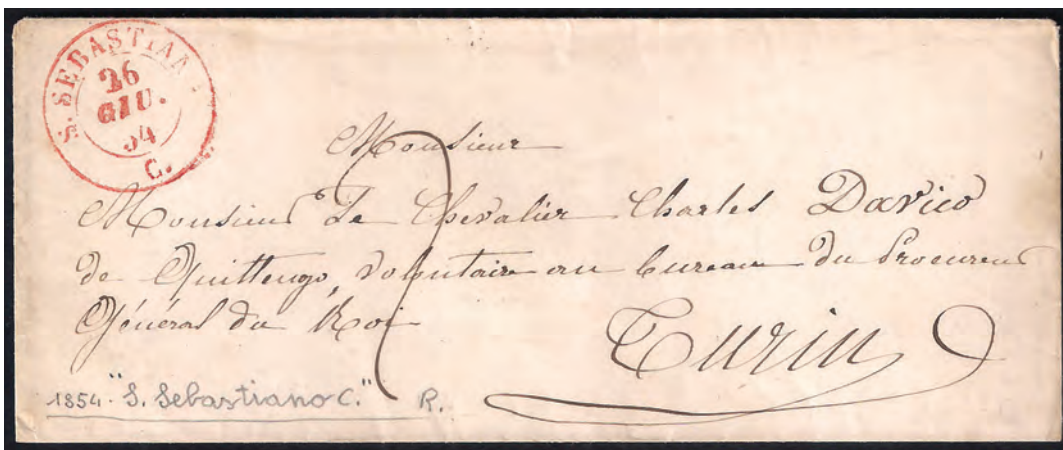 S. SEBASTIA
26
GIU.
54
C.
Monsieur
Monsieur Le Chevalier Charles Davico
de Quittengo, volontaire au bureau du Procureur
Général du Roi
Turin
1854. "S. Sebastiano C." R.